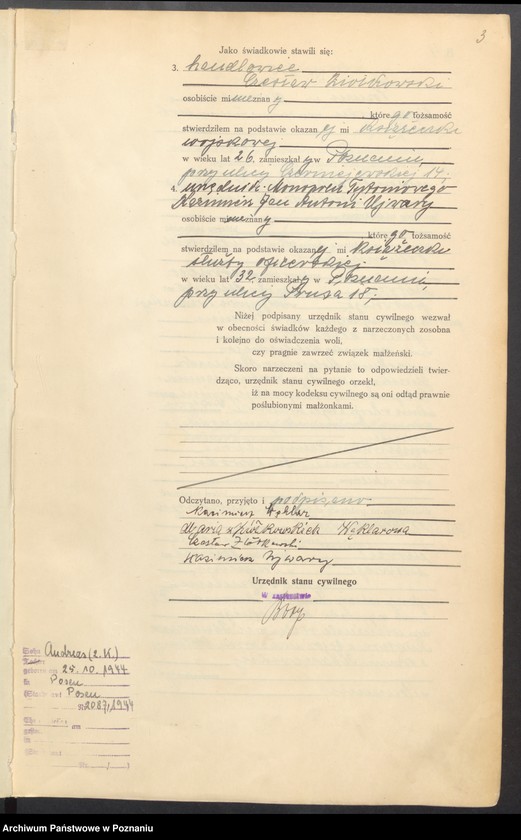 3
Jako świadkowie stawili się:
3. handlowiec
Czesław Ziółkowski
osobiście mi nieznany
którego tożsamość
stwierdziłem na podstawie okazanej mi książeczki
wojskowej
w wieku lat 26, zamieszkały w Poznaniu,
przy ulicy 14;
4. urzędnik Monopolu Tytoniowego
Kazimierz Jan Antoni Ujwary
osobiście mi nieznany
którego tożsamość
stwierdziłem na podstawie okazanej mi książeczki
służby oficerskiej
w wieku lat 32, zamieszkały w Poznaniu,
przy ulicy Prusa 18;
Niżej podpisany urzędnik stanu cywilnego wezwał
w obecności świadków każdego z narzeczonych zosobna
i kolejno do oświadczenia woli,
czy pragnie zawrzeć związek małżeński.
Skoro narzeczeni na pytanie to odpowiedzieli twier-
dząco, urzędnik stanu cywilnego orzekł,
iż na mocy kodeksu cywilnego są oni odtąd prawnie
poślubionymi małżonkami.
Odczytano, przyjęto i podpisano
Kazimierz Węklar
Maria z Ziółkowskich Węklarowa
Czesław Ziółkowski
Kazimierz Ujwary
Urzędnik stanu cywilnego
W zastępstwie
Andreas (2. K.)
geboren am 25. 10. 1944
in Posen
Standesamt Posen
Nr. 2087/1944
am
Nr. /
Archiwum Państwowe w Poznaniu